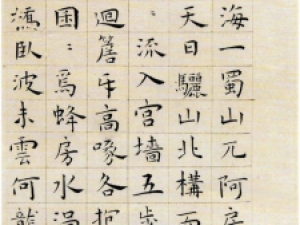 海一蜀山兀阿房
天日驪山北構而
：流入宮墻五步
迴簷牙高啄各抱
囷：焉蜂房水渦
橋臥波未雲何龍